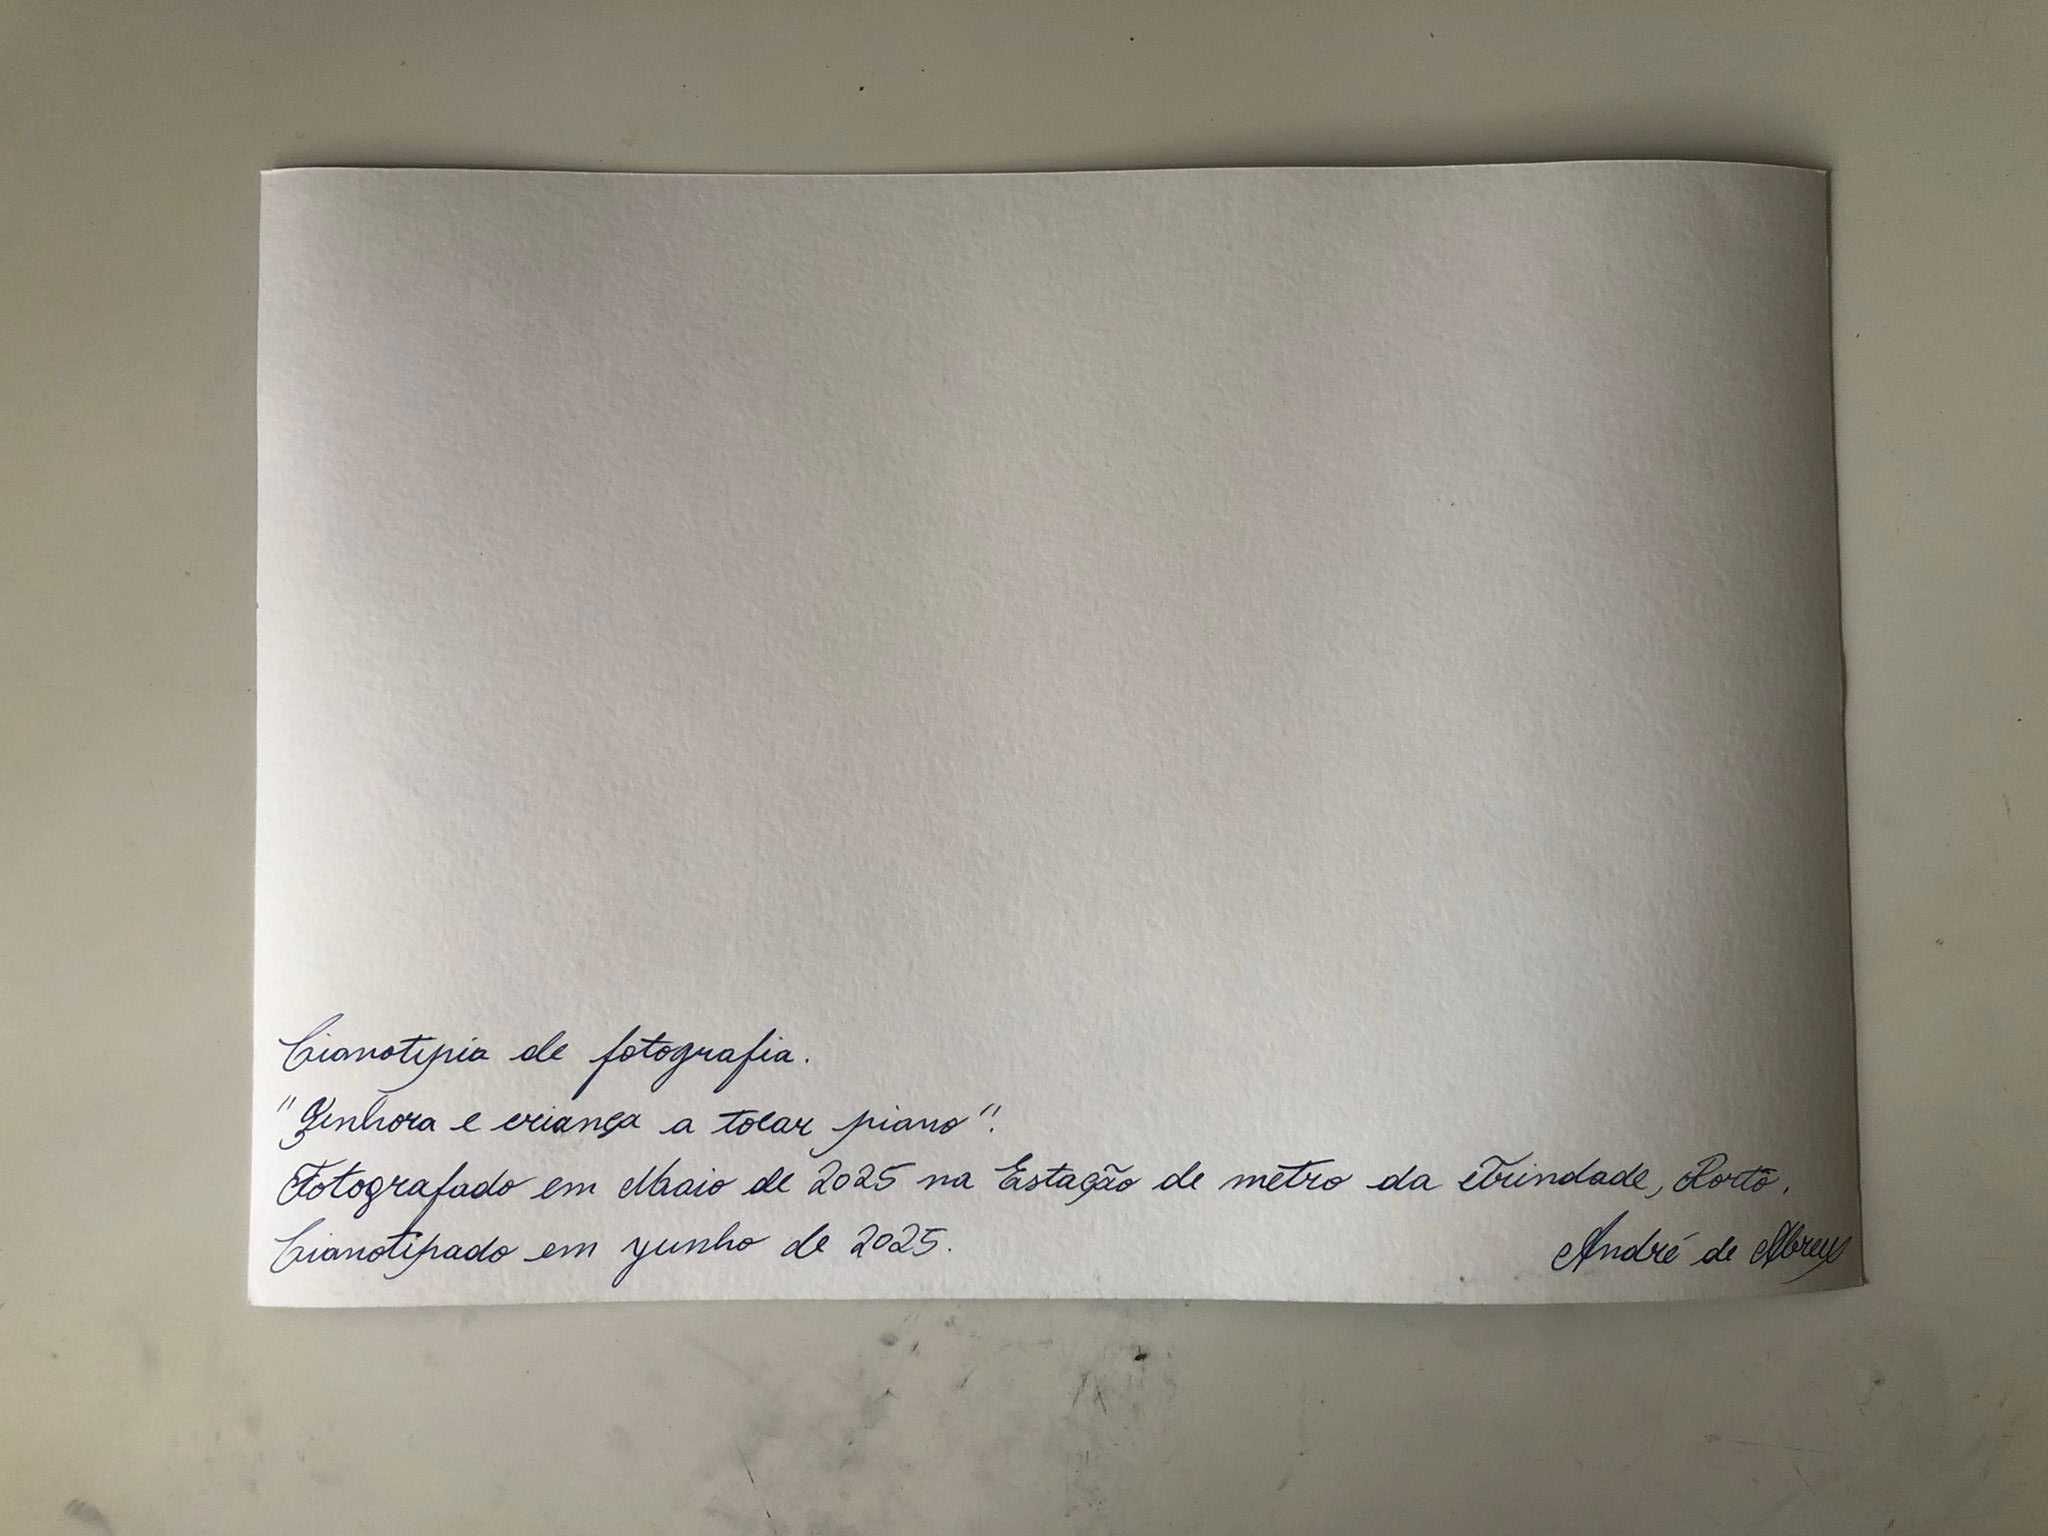 Cianotipia de fotografia.
"Senhora e criança a tocar piano".
Fotografado em Maio de 2025 na Estação de metro da Trindade, Porto.
Cianotipado em junho de 2025.
André de Abreu